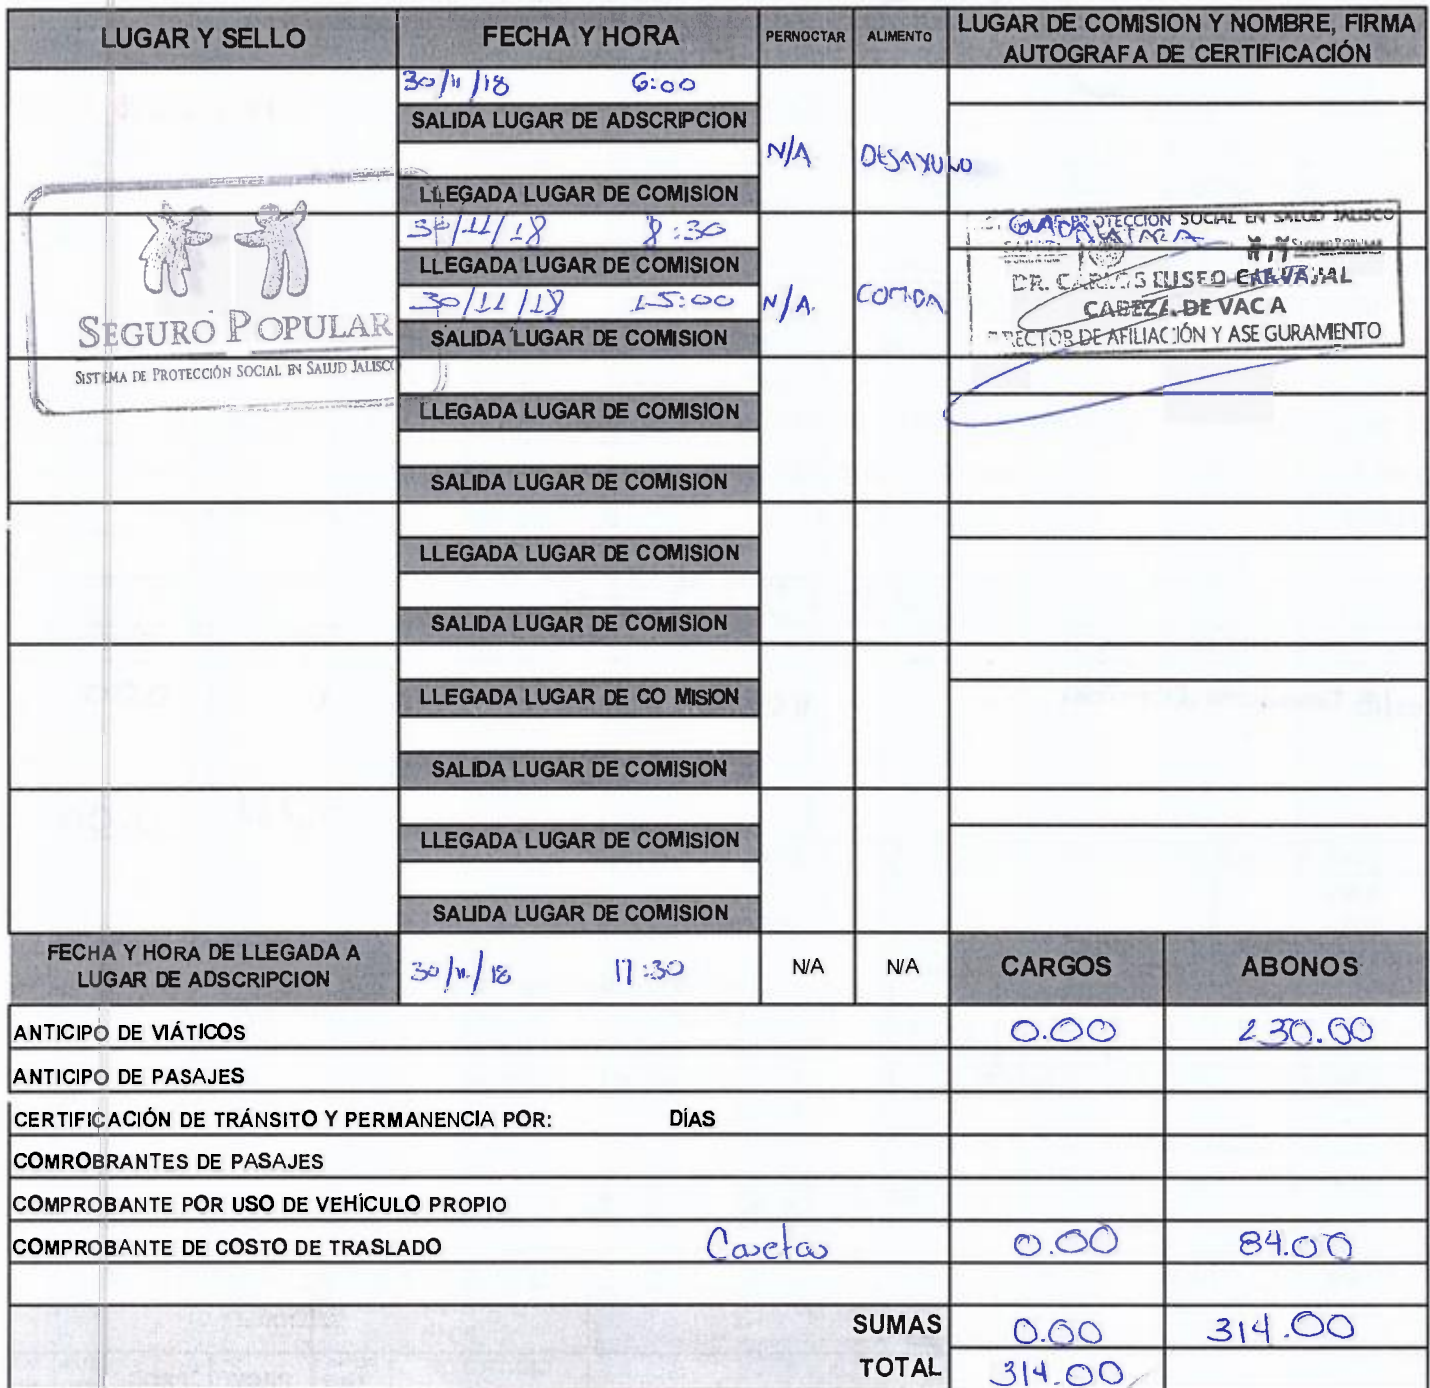 LUGAR Y SELLO
FECHA Y HORA
PERNOCTAR
ALIMENTO
LUGAR DE COMISION Y NOMBRE, FIRMA
AUTOGRAFA DE CERTIFICACIÓN
30/11/18 6:00
SALIDA LUGAR DE ADSCRIPCION
N/A DESAYUNO
LLEGADA LUGAR DE COMISION
30/11/18 8:30
LLEGADA LUGAR DE COMISION
30/11/18 15:00
N/A. COMIDA
SALIDA LUGAR DE COMISION
SEGURO POPULAR
SISTEMA DE PROTECCIÓN SOCIAL EN SALUD JALISCO
PROTECCIÓN SOCIAL EN SALUD JALISCO
GUADALAJARA
DR. CARLOS ELISEO CARVAJAL
CABEZA DE VACA
DIRECTOR DE AFILIACIÓN Y ASEGURAMIENTO
LLEGADA LUGAR DE COMISION
SALIDA LUGAR DE COMISION
LLEGADA LUGAR DE COMISION
SALIDA LUGAR DE COMISION
LLEGADA LUGAR DE CO MISION
SALIDA LUGAR DE COMISION
LLEGADA LUGAR DE COMISION
SALIDA LUGAR DE COMISION
FECHA Y HORA DE LLEGADA A
LUGAR DE ADSCRIPCION
30/11/18 17:30
N/A N/A
CARGOS ABONOS
ANTICIPO DE VIÁTICOS 0.00 230.00
ANTICIPO DE PASAJES
CERTIFICACIÓN DE TRÁNSITO Y PERMANENCIA POR: DÍAS
COMROBRANTES DE PASAJES
COMPROBANTE POR USO DE VEHÍCULO PROPIO
COMPROBANTE DE COSTO DE TRASLADO Casetas 0.00 84.00
SUMAS 0.00 314.00
TOTAL 314.00